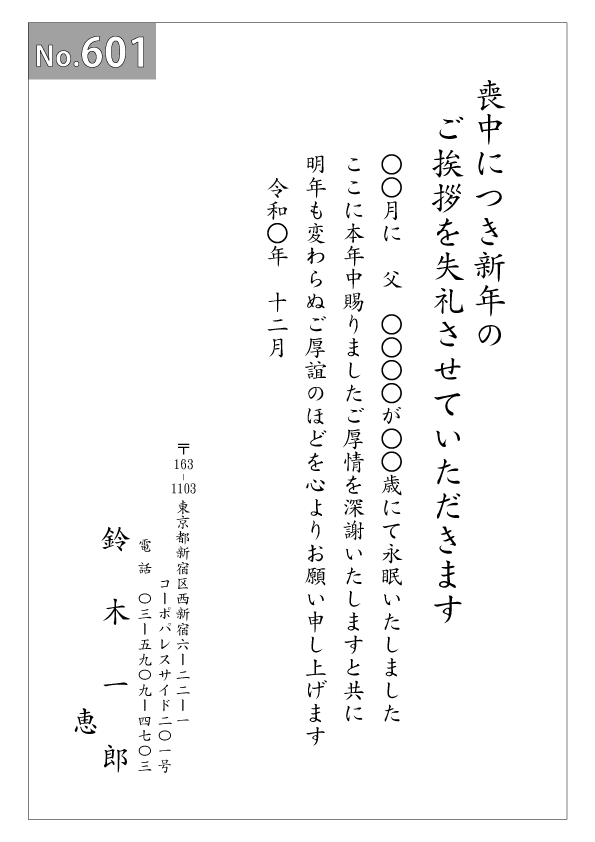 No.601
喪中につき新年の
ご挨拶を失礼させていただきます
〇〇月に　父　〇〇〇〇が〇〇歳にて永眠いたしました
ここに本年中賜りましたご厚情を深謝いたしますと共に
明年も変わらぬご厚誼のほどを心よりお願い申し上げます
令和〇年　十二月
〒163-1103 東京都新宿区西新宿六ー二二ー一
コーポパレスサイド二〇一号
電　話　〇三ー五九〇九ー四七〇三
鈴木一郎
恵